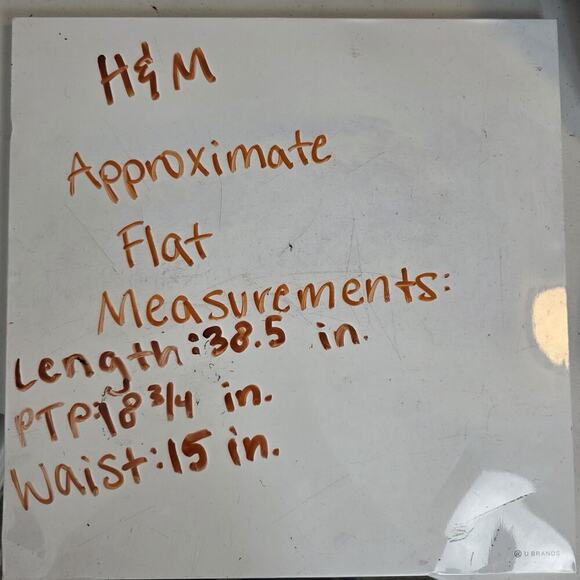 H&M
Approximate
Flat
Measurements:
Length:38.5 in.
PTP:18 3/4 in.
Waist:15 in.
U BRANDS